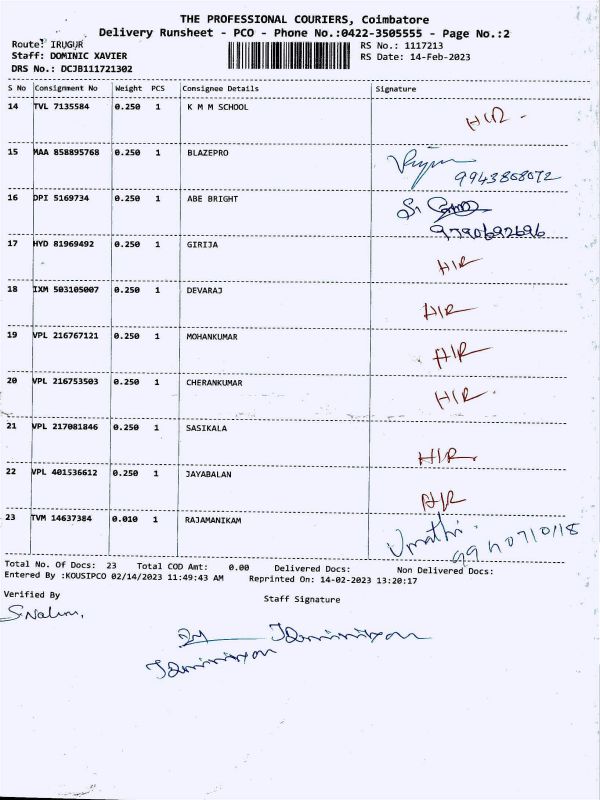 THE PROFESSIONAL COURIERS, Coimbatore
Delivery Runsheet - PCO - Phone No.:0422-3505555 - Page No.:2
Route: IRUGUR
RS No.: 1117213
Staff: DOMINIC XAVIER
RS Date: 14-Feb-2023
DRS No.: DCJB111721302
S No Consignment No Weight PCS Consignee Details Signature
14 TVL 7135584 0.250 1 K M M SCHOOL H/R
15 MAA 858895768 0.250 1 BLAZEPRO
9943868072
16 DPI 5169734 0.250 1 ABE BRIGHT
9790692696
17 HYD 81969492 0.250 1 GIRIJA H/R
18 IXM 503105007 0.250 1 DEVARAJ H/R
19 VPL 216767121 0.250 1 MOHANKUMAR H/R
20 VPL 216753503 0.250 1 CHERANKUMAR H/R
21 VPL 217081846 0.250 1 SASIKALA H/R
22 VPL 401536612 0.250 1 JAYABALAN H/R
23 TVM 14637384 0.010 1 RAJAMANIKAM Umathi
Total No. Of Docs: 23 Total COD Amt: 0.00 Delivered Docs: Non Delivered Docs:
Entered By :KOUSIPCO 02/14/2023 11:49:43 AM Reprinted On: 14-02-2023 13:20:17
Verified By
Staff Signature